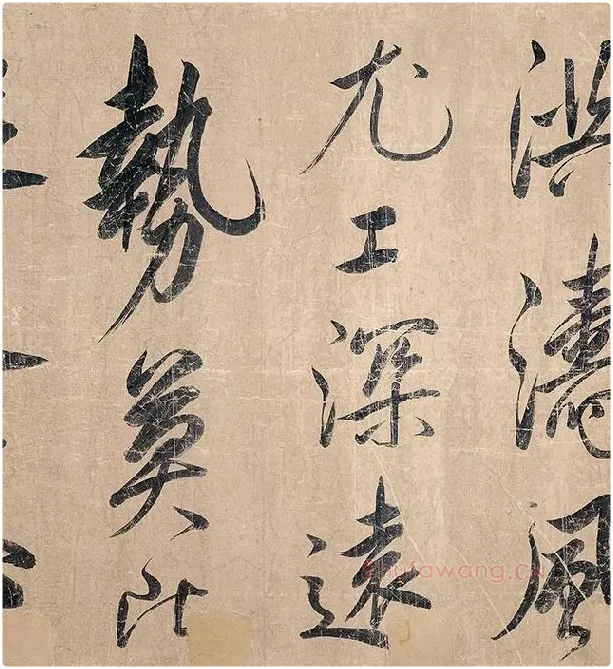 洪濤風
尤工深遠
勢莫比
shufawang.cn